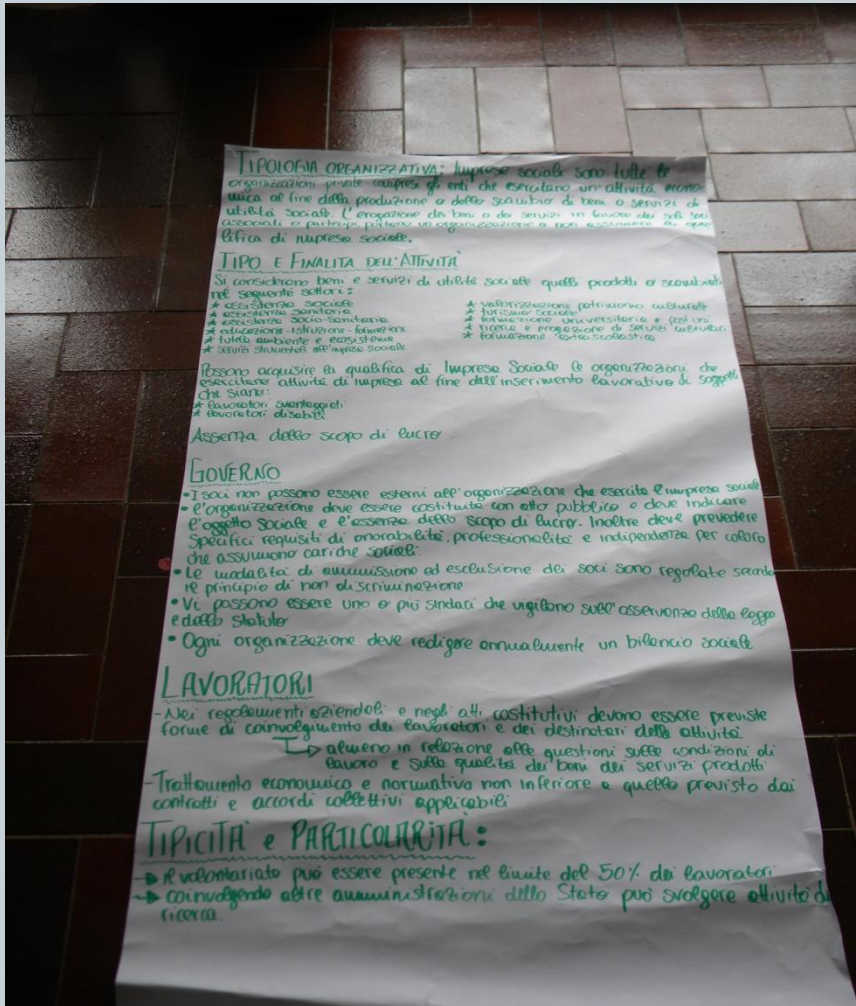 TIPOLOGIA ORGANIZZATIVA: Imprese sociali sono tutte le
organizzazioni private compresi gli enti che esercitano un'attività econo-
mica al fine della produzione o dello scambio di beni o servizi di
utilità sociale. L'erogazione dei beni o dei servizi in favore dei soli soci
associati o partecipi, portano un'organizzazione a non assumere la qua-
lifica di impresa sociale.
TIPO E FINALITA DELL'ATTIVITÀ
Si considerano beni e servizi di utilità sociale quelli prodotti o scambiati
nel seguente settori:
* assistenza sociale
* assistenza sanitaria
* assistenza socio-sanitaria
* educazione-istruzione-formazione
* tutela ambiente e ecosistema
* servizi strumentali all'imprese sociale
* valorizzazione patrimonio culturale
* turismo sociale
* formazione universitaria e post uni.
* ricerca e erogazione di servizi culturali
* formazione extra scolastica
Possono acquisire la qualifica di Imprese Sociale le organizzazioni che
esercitano attività di imprese al fine dell'inserimento lavorativo di soggetti
che siano:
* lavoratori svantaggiati
* lavoratori disabili
Assenza dello scopo di lucro
GOVERNO
• I soci non possono essere esterni all'organizzazione che esercita l'impresa sociale
• l'organizzazione deve essere costituita con atto pubblico e deve indicare
l'oggetto sociale e l'assenza dello scopo di lucro. Inoltre deve prevedere
specifici requisiti di onorabilità, professionalità e indipendenza per coloro
che assumono cariche sociali
• Le modalità di ammissione ed esclusione dei soci sono regolate secondo
il principio di non discriminazione
• Vi possono essere uno o più sindaci che vigilano sull'osservanza della legge
e dello statuto
• Ogni organizzazione deve redigere annualmente un bilancio sociale
LAVORATORI
- Nei regolamenti aziendali e negli atti costitutivi devono essere previste
forme di coinvolgimento dei lavoratori e dei destinatari delle attività
almeno in relazione alle questioni sulle condizioni di
lavoro e sulla qualità dei beni dei servizi prodotti
- Trattamento economico e normativo non inferiore a quello previsto dai
contratti e accordi collettivi applicabili
TIPICITÀ e PARTICOLARITÀ:
→ Il volontariato può essere presente nel limite del 50% dei lavoratori
→ coinvolgendo altre amministrazioni dello Stato può svolgere attività di
ricerca.